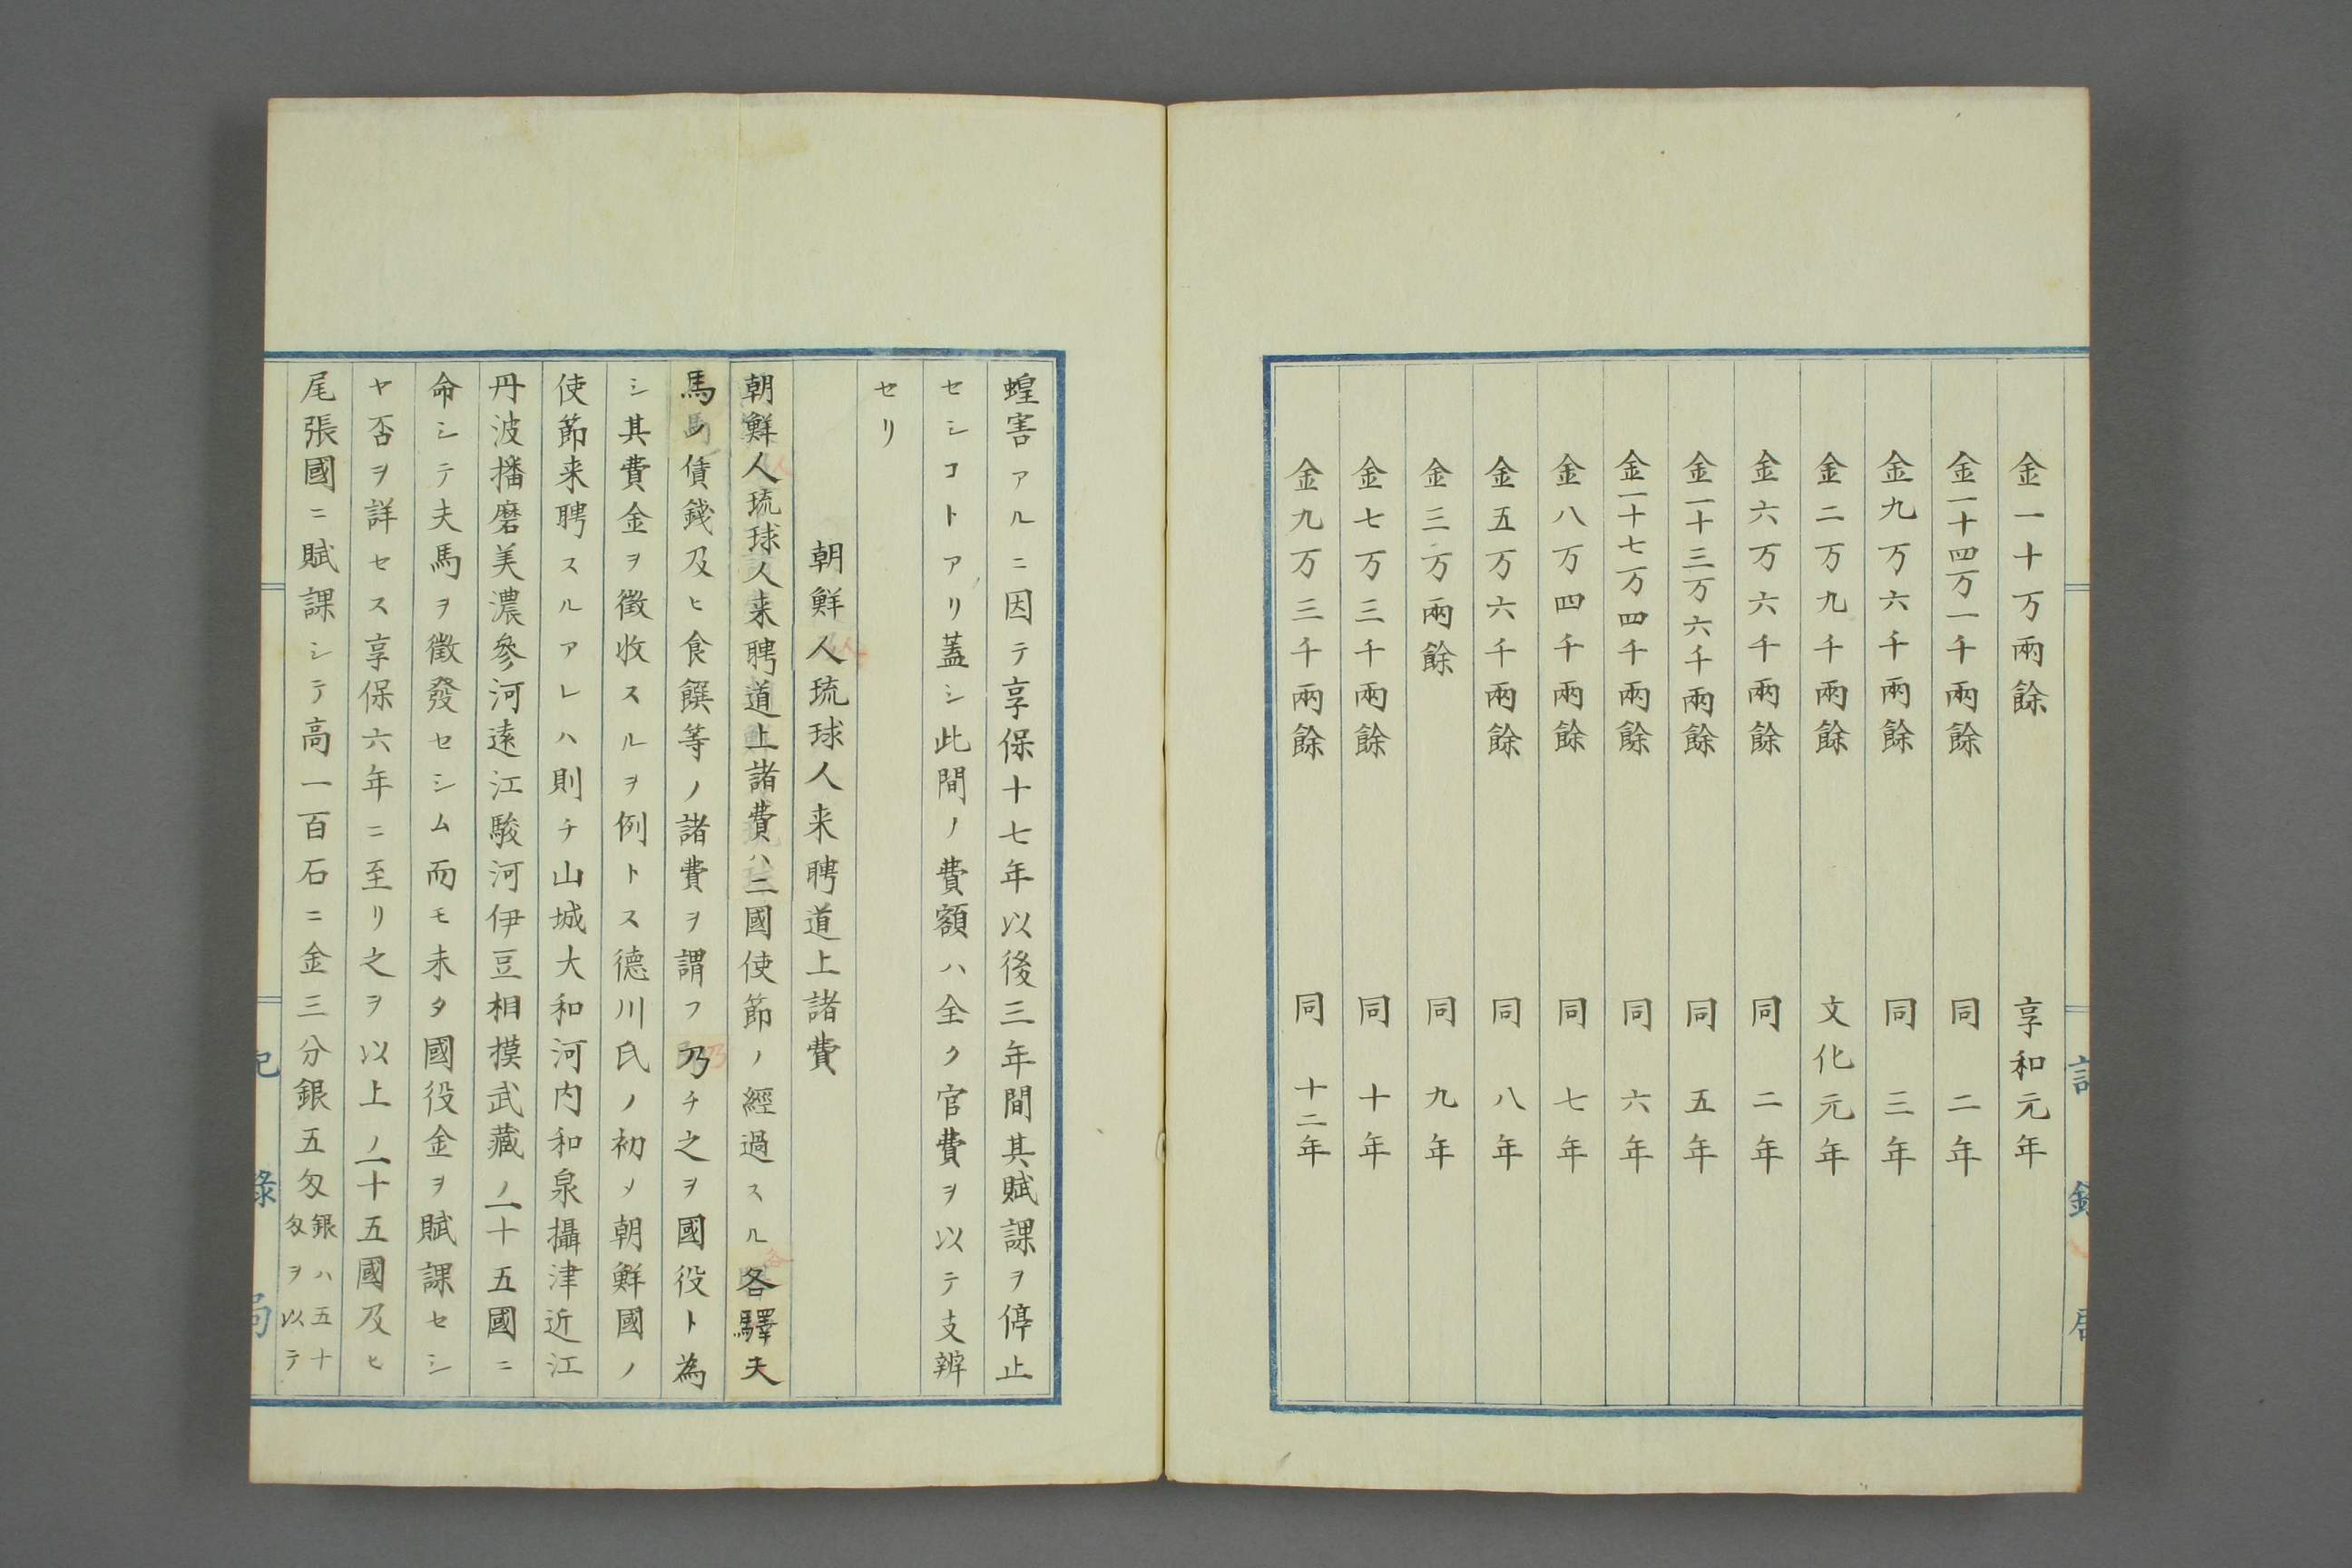 金一十万兩餘 享和元年
金一十四万一千兩餘 同 二年
金九万六千兩餘 同 三年
金二万九千兩餘 文化元年
金六万六千兩餘 同 二年
金一十三万六千兩餘 同 五年
金一十七万四千兩餘 同 六年
金八万四千兩餘 同 七年
金五万六千兩餘 同 八年
金三万兩餘 同 九年
金七万三千兩餘 同 十年
金九万三千兩餘 同 十二年
蝗害アルニ因テ享保十七年以後三年間其賦課ヲ停止
セシコトアリ蓋シ此間ノ費額ハ全ク官費ヲ以テ支辨
セリ
朝鮮人琉球人来聘道上諸費
朝鮮人琉球人来聘道上諸費ハ二國使節ノ經過スル各驛夫
馬ノ賃錢及ヒ食饌等ノ諸費ヲ謂フ乃チ之ヲ國役ト為
シ其費金ヲ徴收スルヲ例トス德川氏ノ初メ朝鮮國ノ
使節来聘スルアレハ則チ山城大和河内和泉攝津近江
丹波播磨美濃參河遠江駿河伊豆相摸武藏ノ一十五國ニ
命シテ夫馬ヲ徴發セシム而モ未タ國役金ヲ賦課セシ
ヤ否ヲ詳セス享保六年ニ至リ之ヲ以上ノ一十五國及ヒ
尾張國ニ賦課シテ高一百石ニ金三分銀五匁銀ハ五十
匁ヲ以テ
記錄局